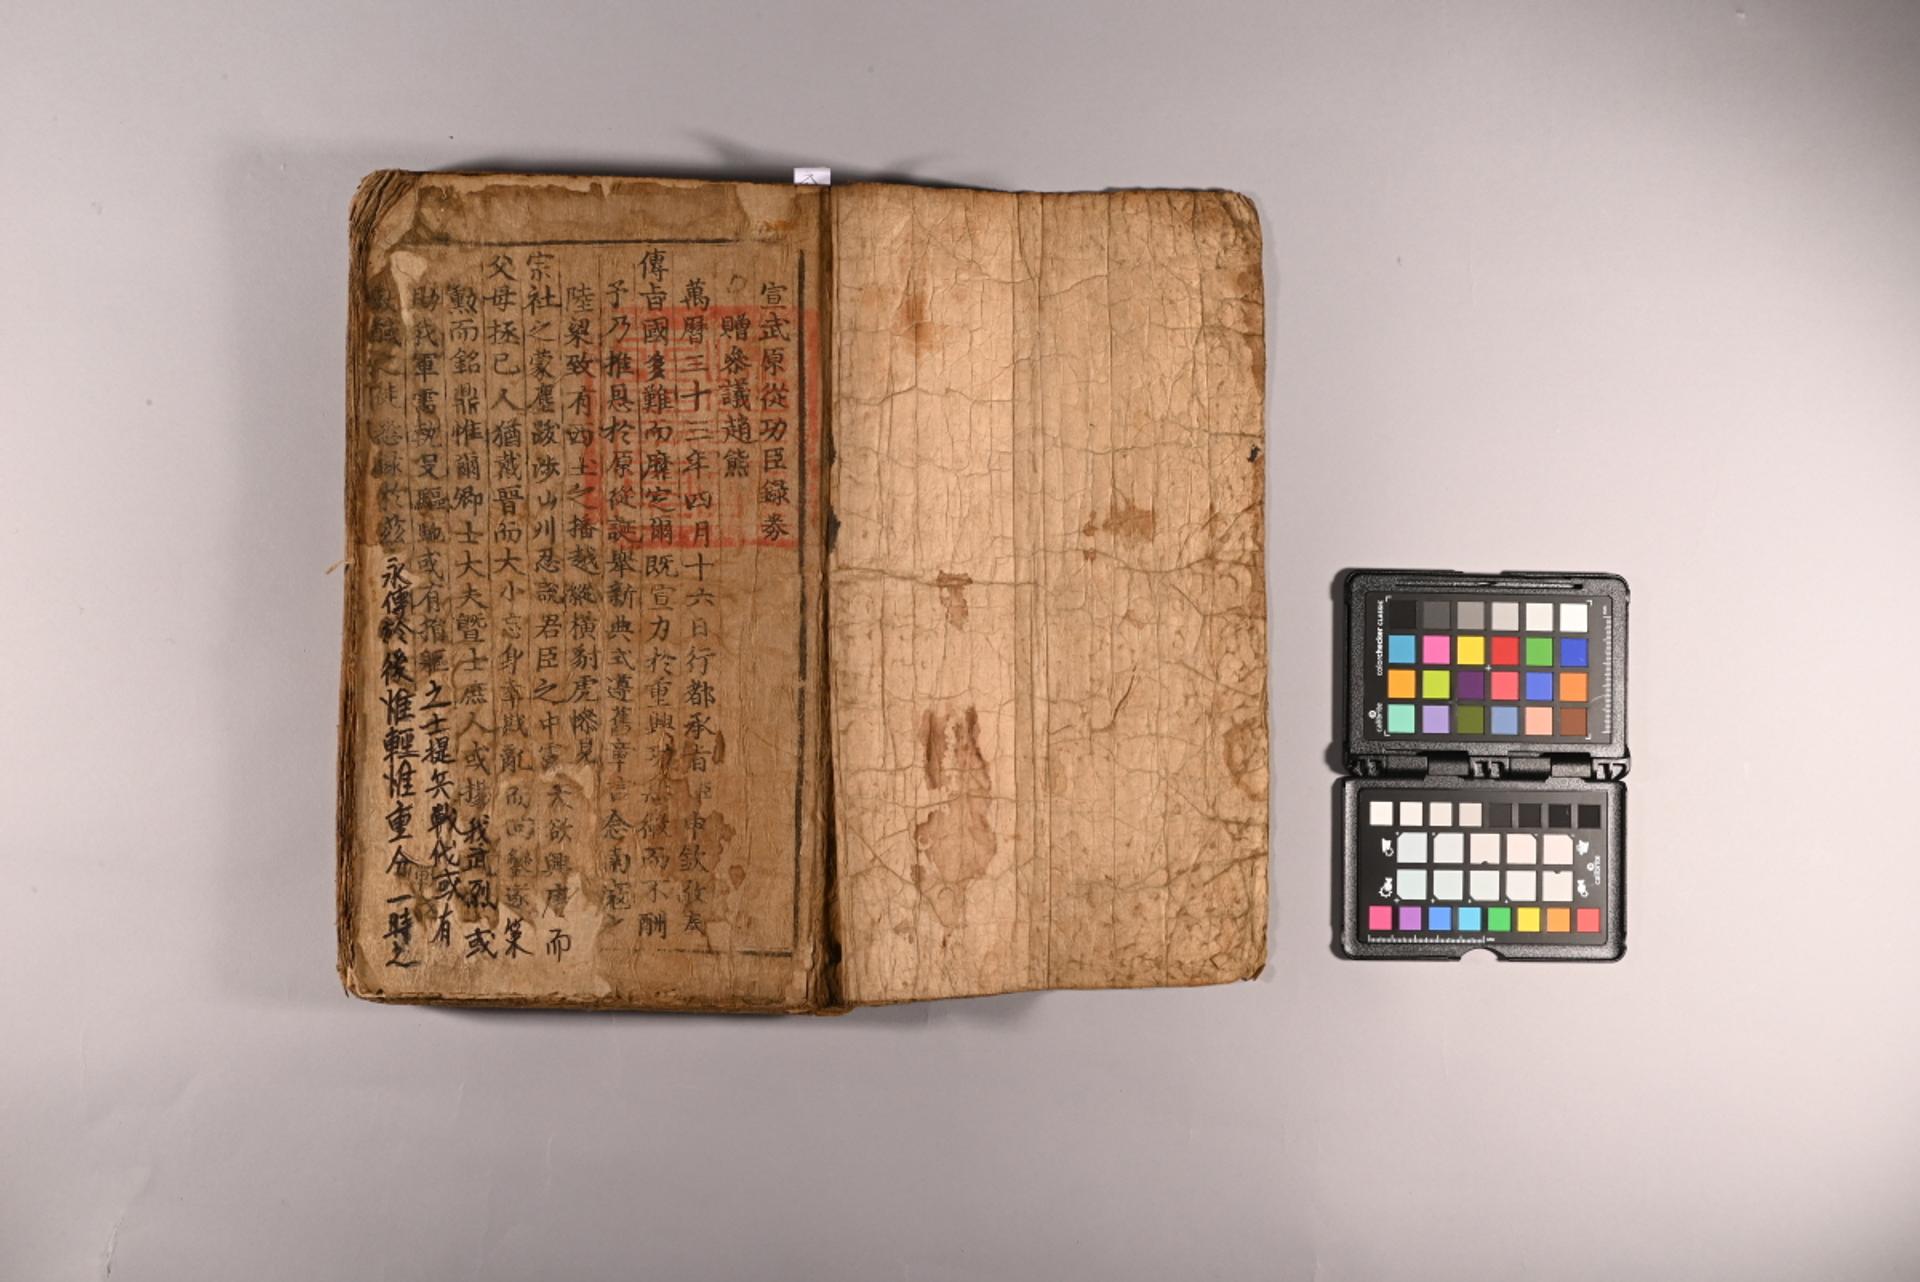 宣武原從功臣錄券
贈參議趙熊
萬曆三十三年四月十六日行都承旨臣申欽敬奉
傳旨國多難而靡定爾既宣力於重興功無微而不酬
予乃推恩於原從誕擧新典式遵舊章言念南寇之
陸梁致有西土之播越縱橫豺虎慘見
宗社之蒙塵跋涉山川忍說君臣之中露天欲興唐而
父母拯已人猶戴晉而大小忘身幸戡亂而回鑾遂策
勳而銘鼎惟爾卿士大夫曁士庶人或揚我武烈或
助我軍需執殳驅馳或有捐軀之士提兵戰伐或有
馘之徒 於玆永傳於後惟輕惟重分一時之
colorchecker CLASSIC
calibrite
calibrite